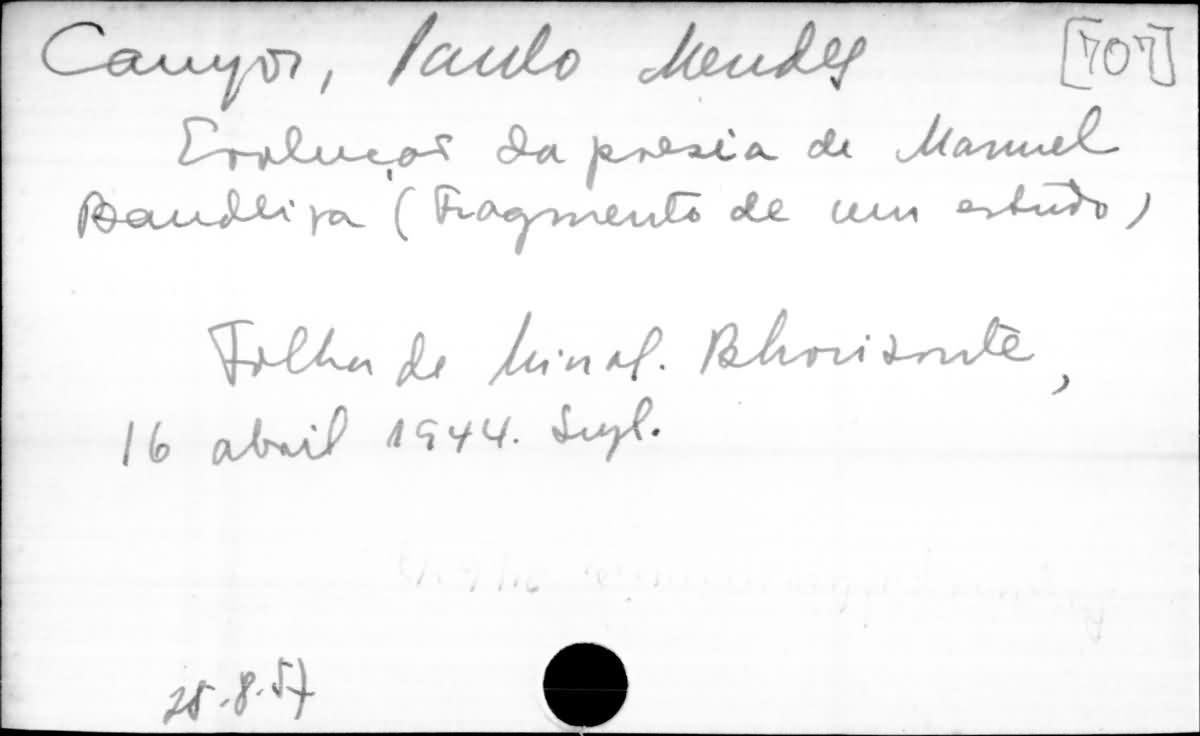 Campos, Paulo Mendes [707]
Evolução da poesia de Manuel
Bandeira (Fragmento de um estudo)
Folha de Minas. Bhorizonte,
16 abril 1944. Supl.
28.8.57